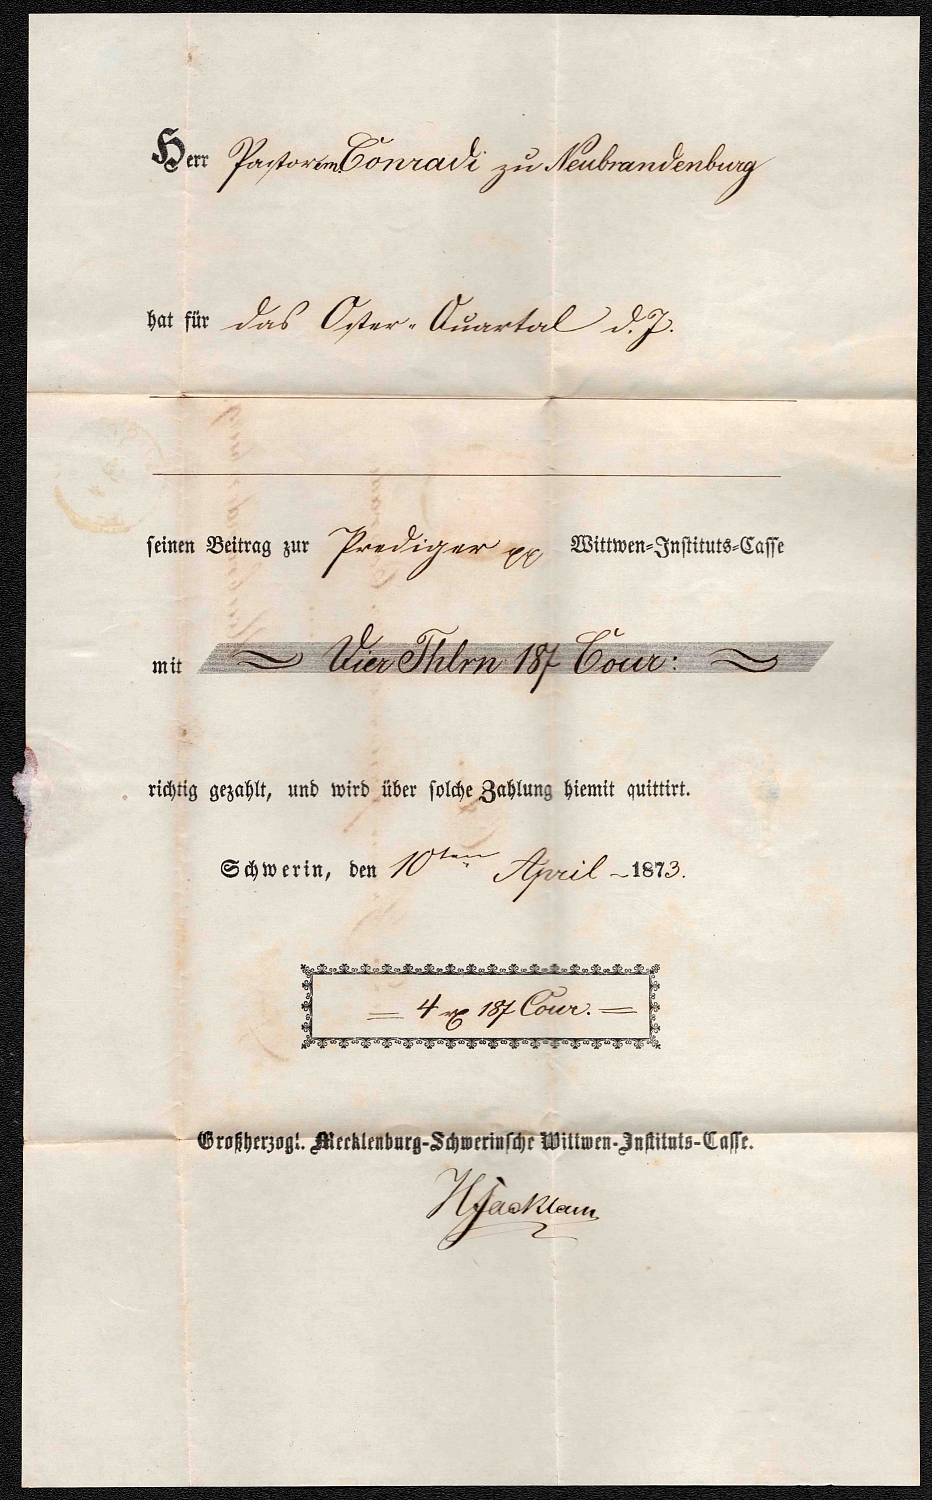 Herr Pastor em. Conradi zu Neubrandenburg
hat für das Oster-Quartal d. J.
seinen Beitrag zur Prediger Wittwen-Instituts-Casse
mit Vier Thlrn 18 Cour:
richtig gezahlt, und wird über solche Zahlung hiemit quittirt.
Schwerin, den 10ten April 1873.
4 18 Cour.
Großherzogl. Mecklenburg-Schwerinsche Wittwen-Instituts-Casse.